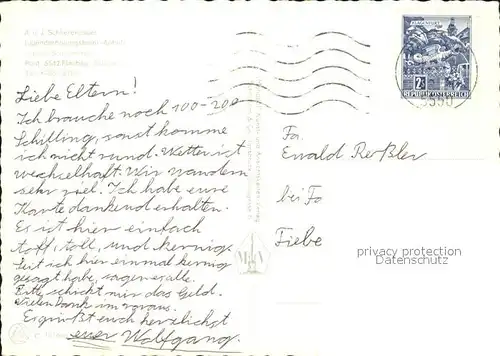 KLAGENFURT
2S
REPUBLIK ÖSTERREICH
Liebe Eltern!
Ich brauche noch 100-200
Schilling, sonst komme
ich nicht rund. Wetter ist
wechselhaft. Wir wandern
sehr viel. Ich habe eure
Karte dankend erhalten.
Es ist hier einfach
toff, toll, und kernig.
Seit ich hier einmal kernig
gesagt habe, sagen es alle.
Bitte schickt mir das Geld.
Vielen Dank im voraus.
Es grüßt euch herzlichst
euer Wolfgang.
Fa.
Ewald
bei Fa
privacy protection
Datenschutz